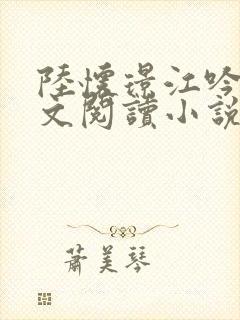 陸懷璟江吟
文閱讀小說
蕭美琴